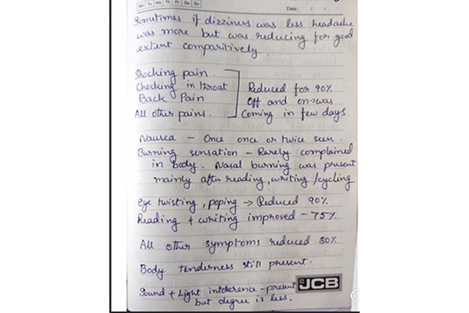 Mo Tu We Th Fr Sa Su
Date: / /
Sometimes if dizziness was less headache
was more but was reducing for good
extent comparitively.
Shocking pain
Chocking in throat
Back Pain
All other pains.
Reduced for 90%
Off and on was
Coming in few days.
Nausea - Once or twice seen -
Burning sensation - Rarely complained
in body. Nasal burning was present
mainly after reading, writing / cycling
Eye twisting, poping → Reduced 90%
Reading + writing improved - 75%
All other symptoms reduced 80%.
Body tenderness still present.
Sound + Light intolerence - present
but degree is less.
JCB